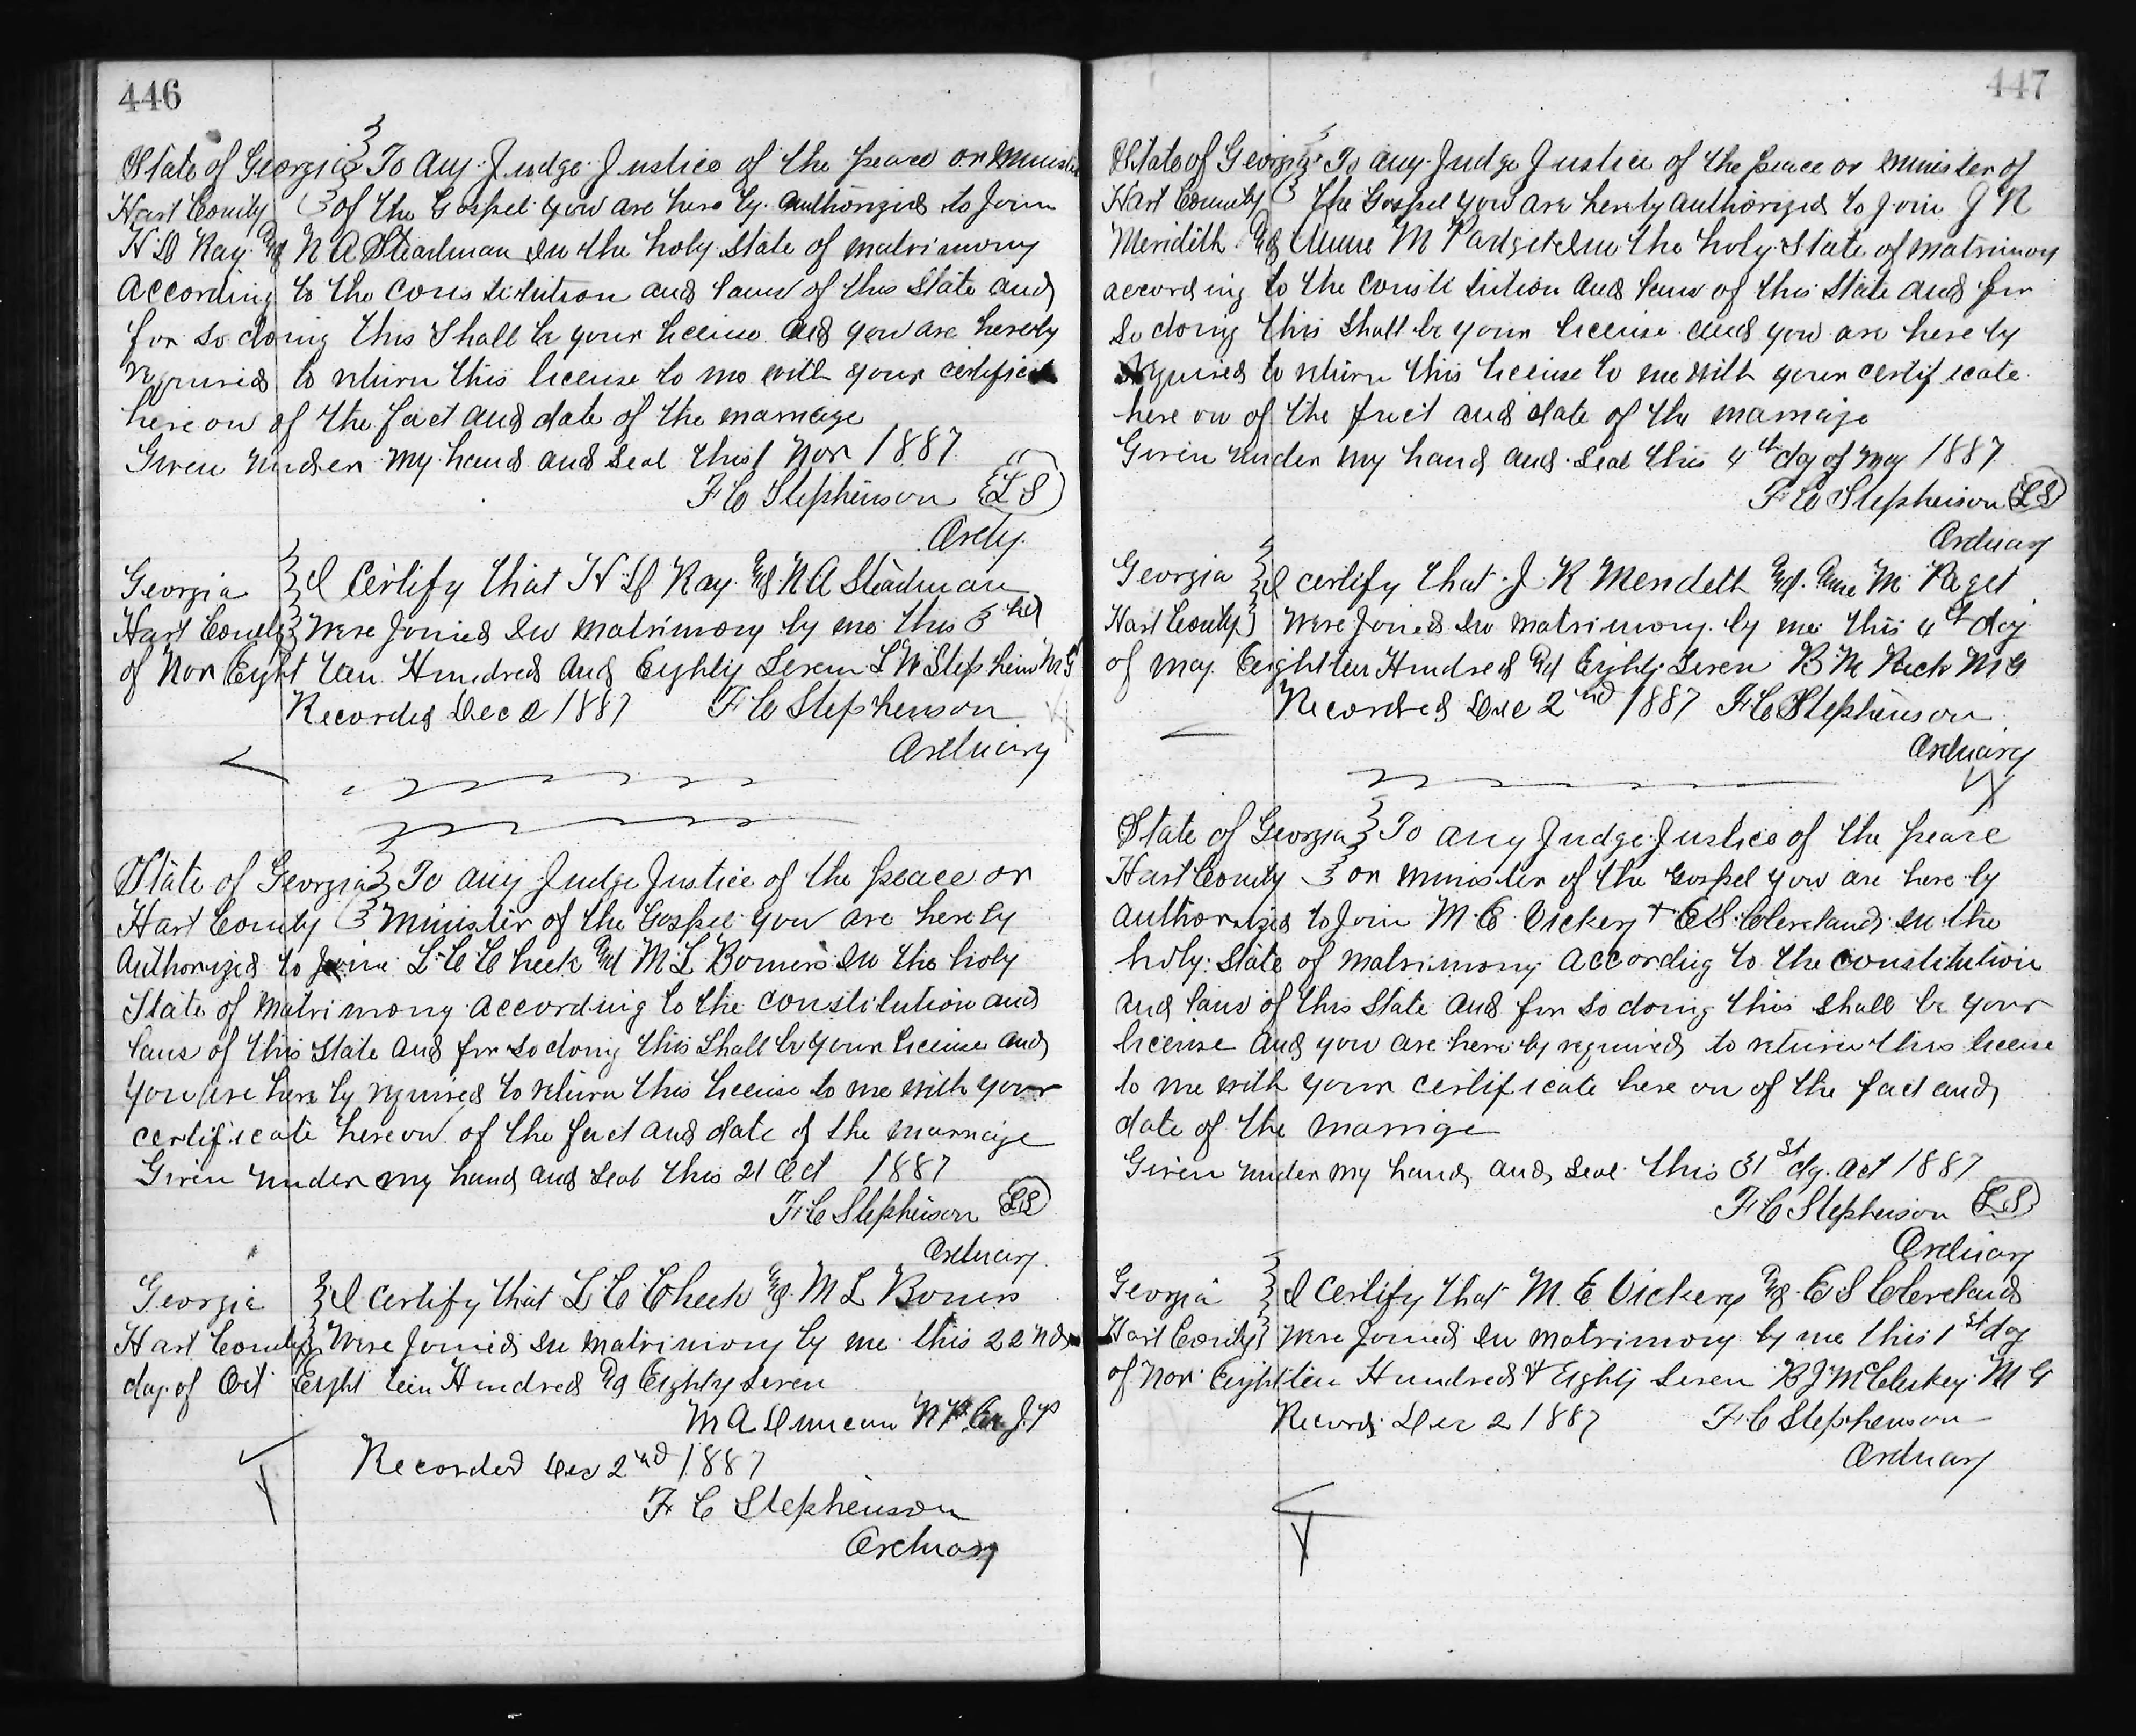 446
State of Georgia } To any Judge Justice of the peace or Minister
Hart County } of the Gospel you are here by authorized to Join
H D Ray And N A Steadman In the holy State of matrimony
According to the constitution and laws of this State and
for so doing this Shall be your license and you are hereby
required to return this license to me with your certificate
hereon of the fact and date of the marraige
Given under my hand and seal this 1 Nov 1887
F C Stephenson (L S)
Ordy.
Georgia } I Certify that H D Ray And N A Steadman
Hart County } Were Joined In matrimony by me this 3rd
of Nov Eight teen Hundred and Eighty Seven L W Stephens M G
Recorded Dec 2 1887 F C Stephenson
Ordinary
State of Georgia } To any Judge Justice of the peace or
Hart County } Minister of the Gospel you are hereby
Authorized to Join L C Cheek And M L Bowers In the holy
State of Matrimony according to the constitution and
laws of this State and for so doing this Shall be your license and
you are here by required to return this license to me with your
certificate hereon of the fact and date of the marraige
Given under my hand and seal this 21 Oct 1887
F C Stephenson (LS)
Ordinary
Georgia } I certify that L C Cheek And M L Bowers
Hart County } Were Joined In matrimony by me this 22nd
day of Oct Eight teen Hundred And Eighty Seven
M A Duncan N P Ex J.P
Recorded Dec 2nd 1887
F C Stephenson
Ordinary
447
State of Georgia } To any Judge Justice of the peace or minister of
Hart County } the Gospel you are hereby authorized to Join J R
Meridith And Anne M Padgett In the holy State of matrimony
according to the constitution and laws of this State and for
so doing this Shall be your license and you are here by
required to return this license to me with your certificate
here on of the fact and date of the marraige
Given under my hand and seal this 4th day of May 1887
F C Stephenson (L S)
Ordinary
Georgia } I certify that J R Merideth And Anne M Paget
Hart County } Were Joined In matrimony by me this 4th day
of May Eighteen Hundred And Eighty Seven B M Pack M G
Recorded Dec 2nd 1887 F C Stephenson
Ordinary
State of Georgia } To any Judge Justice of the peace
Hart County } or minister of the Gospel you are here by
authorized to Join M E Vickery + E S Cleveland In the
holy State of matrimony According to the constitution
and laws of this State and for so doing this shall be your
license and you are here by required to return this license
to me with your certificate here on of the fact and
date of the marrige
Given under my hand and seal this 31st dy Oct 1887
F C Stephenson (L S)
Ordinary
Georgia } I Certify that M. E Vickery And E S Cleveland
Hart County } Were Joined In matrimony by me this 1st day
of Nov Eighteen Hundred + Eighty Seven B J McCluskey M G
Record Dec 2 1887 F C Stephenson
Ordinary